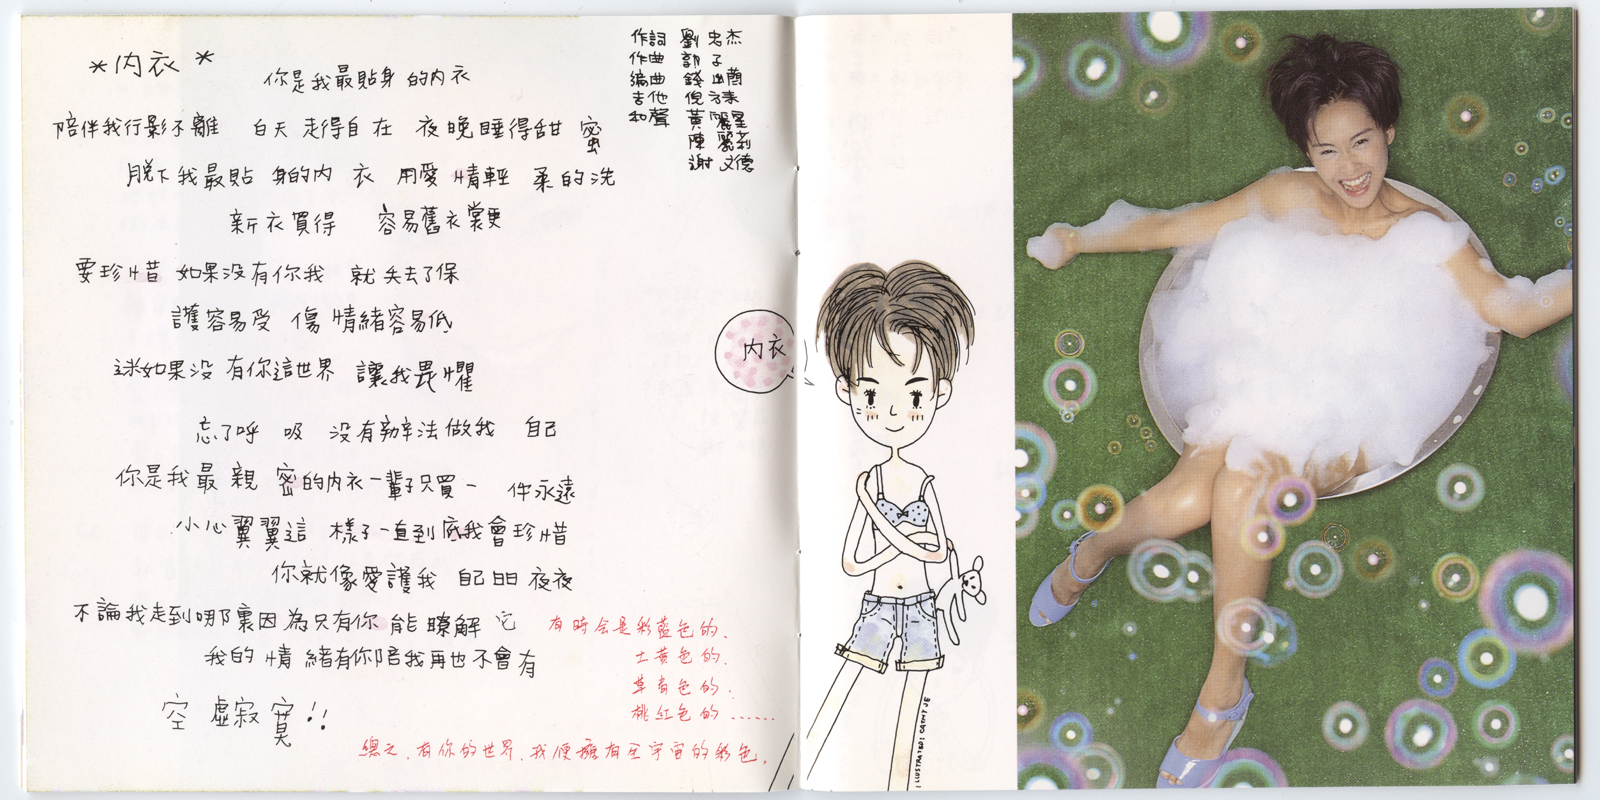 *内衣*
你是我最貼身的内衣
陪伴我行影不離 白天走得自在 夜晚睡得甜蜜
脫下我最貼身的内衣 用愛情輕柔的洗
新衣買得 容易舊衣裳更
要珍惜 如果没有你我 就失去了保
護容易受傷 情緒容易低
迷如果没有你這世界 讓我畏懼
忘了呼吸 没有辦法做我自己
你是我最親密的内衣一輩子只買一件永遠
小心翼翼這樣子一直到底我會珍惜
你就像愛護我自己日日夜夜
不論我走到哪裏因為只有你能瞭解它
我的情緒有你陪我再也不會有
空虛寂寞!!
有時会是彩藍色的.
土黄色的.
草青色的.
桃紅色的......
總之,有你的世界,我便擁有至宇宙的彩色.
作詞 劉忠杰
作曲 郭子
編曲 錢幽蘭
吉他 倪方來
和聲 黄
陳麗莉
謝文德
内衣
ILLUSTRATED: